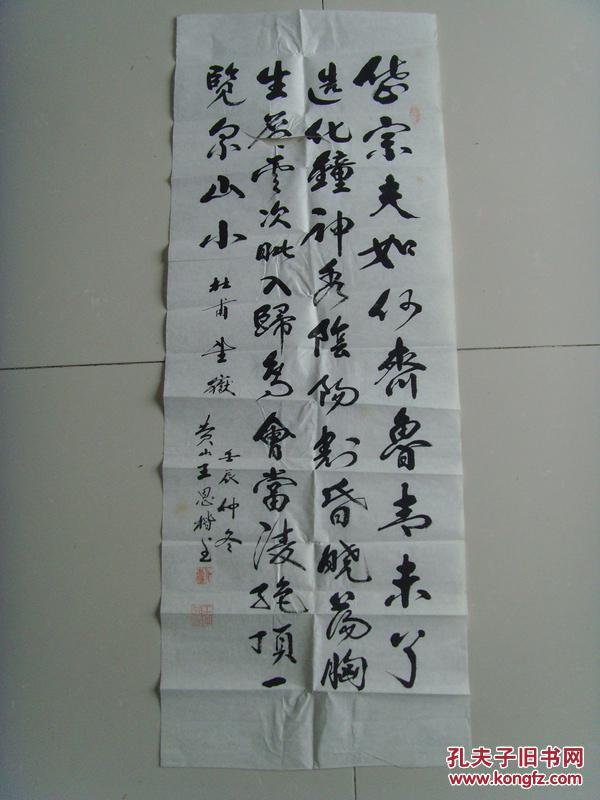 岱宗夫如何齊魯青未了
造化鐘神秀陰陽割昏曉蕩胸
生层雲次眦入歸鳥會當凌絶頂一
覽众山小 杜甫望嶽
壬辰仲冬
黄山王思
孔夫子旧书网
www.kongfz.com